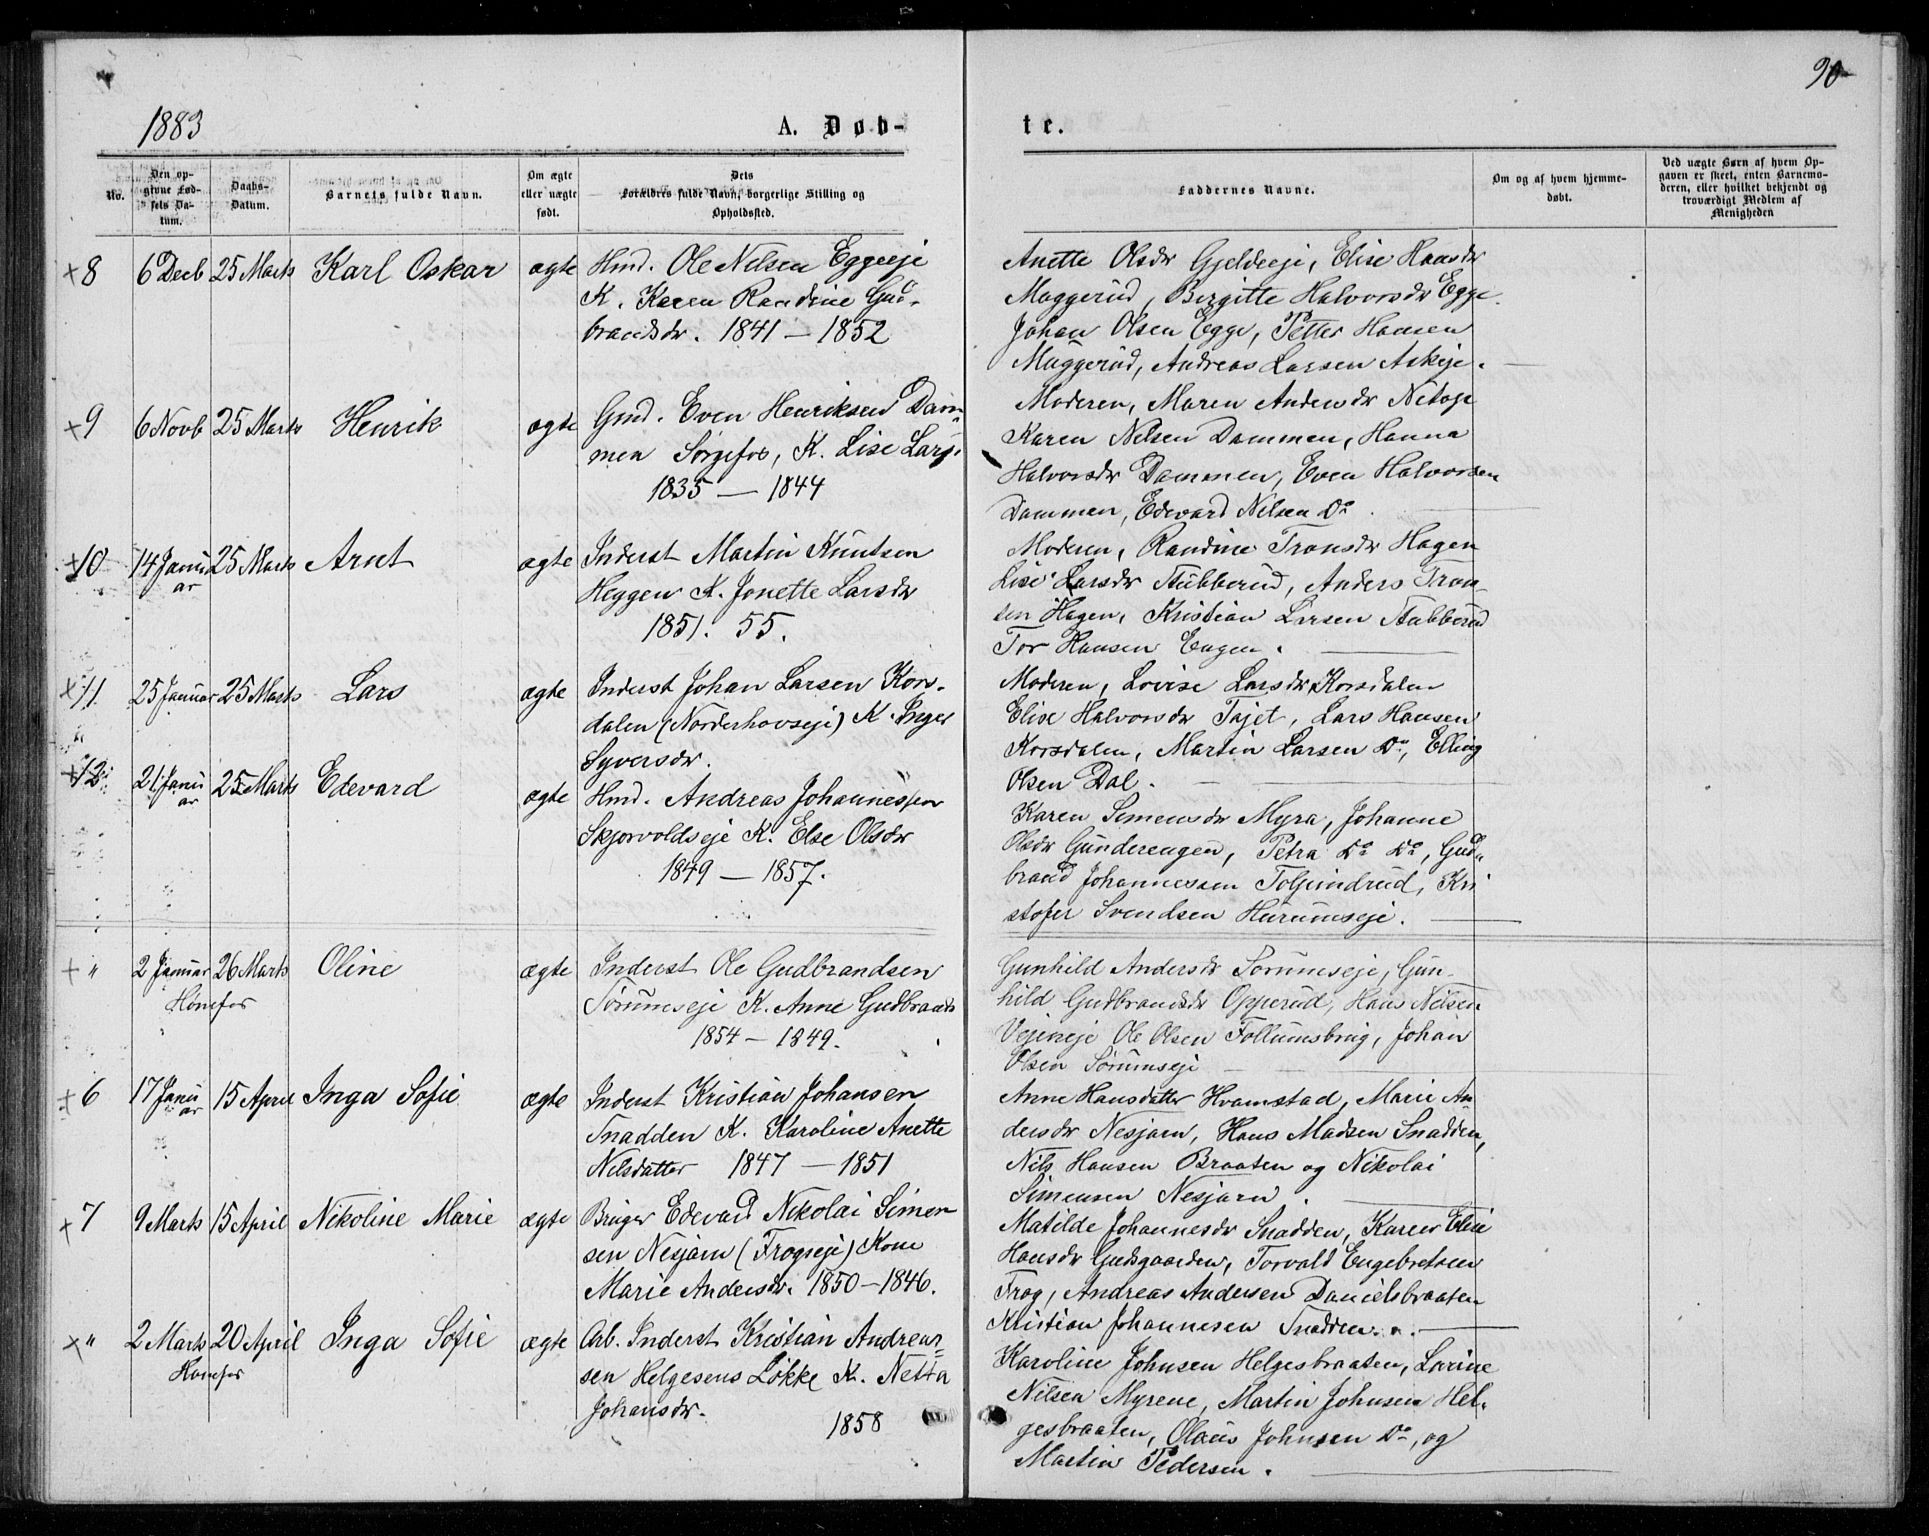 90
1883
A. Døb-
te.
No.
Den op-
givne Fød-
sels Da-
tum.
Daabs-
Datum.
Barnets fulde Navn.
Om ægte
eller uægte
født.
Dets
Forældres fulde Navn, borgerlige Stilling og
Opholdssted.
Faddernes Navne.
Om og af hvem hjemme-
døbt.
Ved uægte Børn af hvem Op-
gaven er skeet, enten Barnemo-
deren, eller hvilket bekjendt og
troværdigt Medlem af
Menigheden
+8 6 Decb 25 Marts Karl Oskar ægte Hmd. Ole Nilsen Eggeeje
K. Karen Randine Gud-
brandsdr. 1841 — 1852
Anette Olsdr Gjeldeeje, Elise Hansdr
Muggerud, Birgitte Halvorsdr Egge.
Johan Olsen Egge, Petter Hansen
Muggerud, Andreas Larsen Askeje.
+9 6 Novb 25 Marts Henrik ægte Gmd. Even Henriksen Dam-
men Sørgefos, K. Lise Lars.
1835 — 1844
Moderen, Maren Andersdr
Karen Nilsen Dammen, Hanna
Halvorsdr Dammen, Even Halvorsen
Dammen, Edevard Nilsen Do
+10 14 Janu
ar 25 Marts Arnt ægte Inderst Martin Knutsen
Heggen K. Jonette Larsdr
1851. 55.
Moderen, Randine Tronsdr Hagen
Lise Larsdr Stubberud, Anders Tron-
sen Hagen, Kristian Larsen Stubberud
Tor Hansen Engen.
+11. 25 Januar 25 Marts Lars ægte Inderst Johan Larsen Kors-
dalen (Norderhovseje) K. Inger
Syversdr.
Moderen, Lovise Larsdr Korsdalen
Elise Halvorsdr Tajet, Lars Hansen
Korsdalen, Martin Larsen Do, Elling
Olsen Dal.
+12 21 Janu
ar 25 Marts Edevard ægte Hmd. Andreas Johannessen
Skjorvoldseje K. Else Olsdr
1849 — 1857.
Karen Simensdr Myra, Johanne
Olsdr Gunderengen, Petra Do Do, Gud-
brand Johannessen Tolpinrud, Kri
stofer Svendsen Hurumseje.
+ " 2 Januar 26 Marts Oline ægte Inderst Ole Gudbrandsen
Hønefos
Sørumseje K. Anne Gudbrands
1854 — 1849.
Gunhild Andersdr Sørumseje, Gun-
hild Gudbrandsdr Opperud, Hans Nilsen
Vejeneje Ole Olsen Follumsbrug, Johan
Olsen Sørumseje
+6 17 Janu
ar 15 April Inga Sofie ægte Inderst Kristian Johansen
Snadden K. Karoline Anette
Nilsdatter 1847 — 1851
Anne Hansdatter Hvamstad, Marie An-
dersdr Nesjarn, Hans Madsen Snadden,
Nils Hansen Braaten og Nikolai
Simensen Nesjarn.
+7 9 Marts 15 April Nikoline Marie ægte Bruger Edevard Nikolai Simen
sen Nesjarn (Frogseje) Kone
Marie Andersdr. 1850 — 1846.
Matilde Johannesdr Snadden, Karen Elise
Hansdr Gudsgaarden, Torvald Engebretsen
Frog, Andreas Andersen Danielsbraaten
Kristian Johannesen Snadden.
+ " 2 Marts 20 April Inga Sofie ægte Arb. Inderst Kristian Andreas-
Hønefos
sen Helgesens Løkke K. Netta
Johansdr. 1858
Karoline Johnsen Helgesbraaten, Lovine
Nilsen Myrene, Martin Johnsen Hel-
gesbraaten, Olaus Johnsen Do, og
Martin Pedersen.